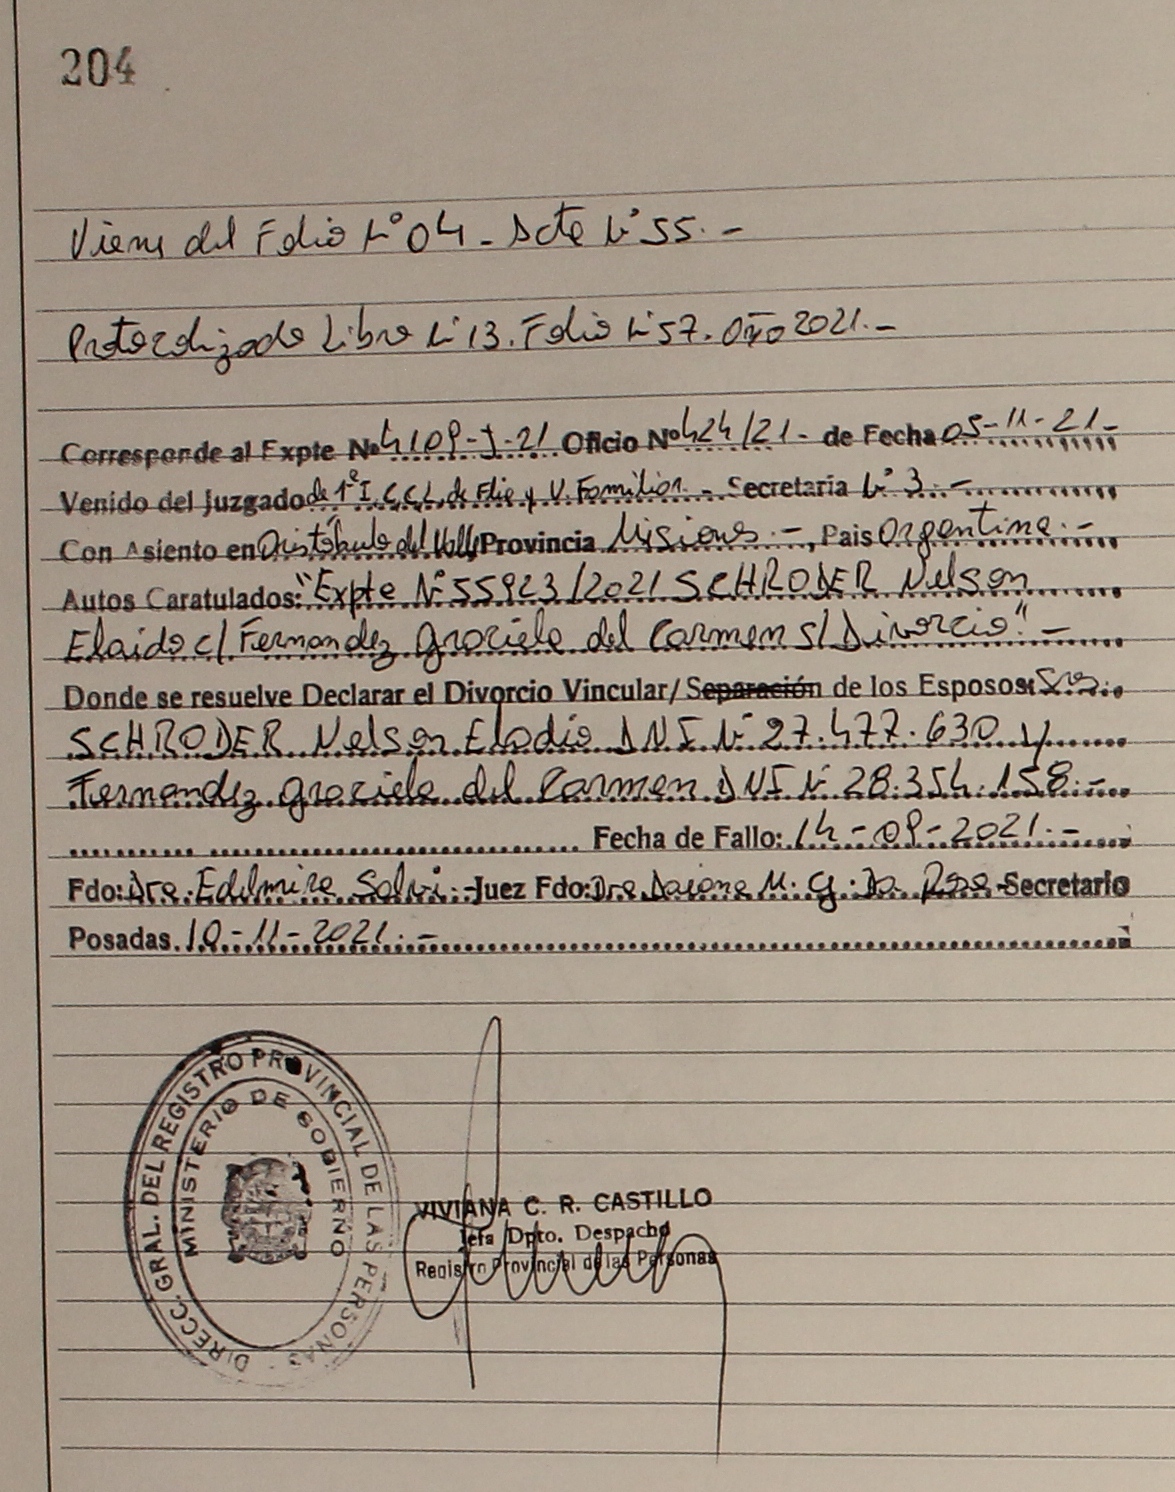 204
Viene del Folio N° 04 - Acta N° 55. -
Protocolizado Libro N° 13. Folio N° 57. Año 2021. -
Corresponde al Expte Nº 4109-J-21 Oficio Nº 424/21- de Fecha 05-11-21-
Venido del Juzgado de 1ª I. C.C.L. de Flia y V. Familiar - Secretaria N° 3. -
Con Asiento en Aristóbulo del Valle Provincia Misiones. -, Pais Argentina. -
Autos Caratulados: "Expte N° 55923/2021 SCHRODER Nelson
Elaido c/ Fernandez Graciela del Carmen s/ Divorcio" -
Donde se resuelve Declarar el Divorcio Vincular/Separación de los Esposos: Sres.
SCHRODER Nelson Eladio DNI N° 27.477.630 y
Fernandez Graciela del Carmen DNI N° 28.354.158. -
Fecha de Fallo: 14-09-2021. -
Fdo: Dra. Edelmira Salvi. - Juez Fdo: Dra Daiana M. G. Da Rosa - Secretario
Posadas. 10-11-2021. -
DIRECC. GRAL. DEL REGISTRO PROVINCIAL DE LAS PERSONAS -
MINISTERIO DE GOBIERNO
VIVIANA C. R. CASTILLO
Jefa Dpto. Despacho
Registro Provincial de las Personas